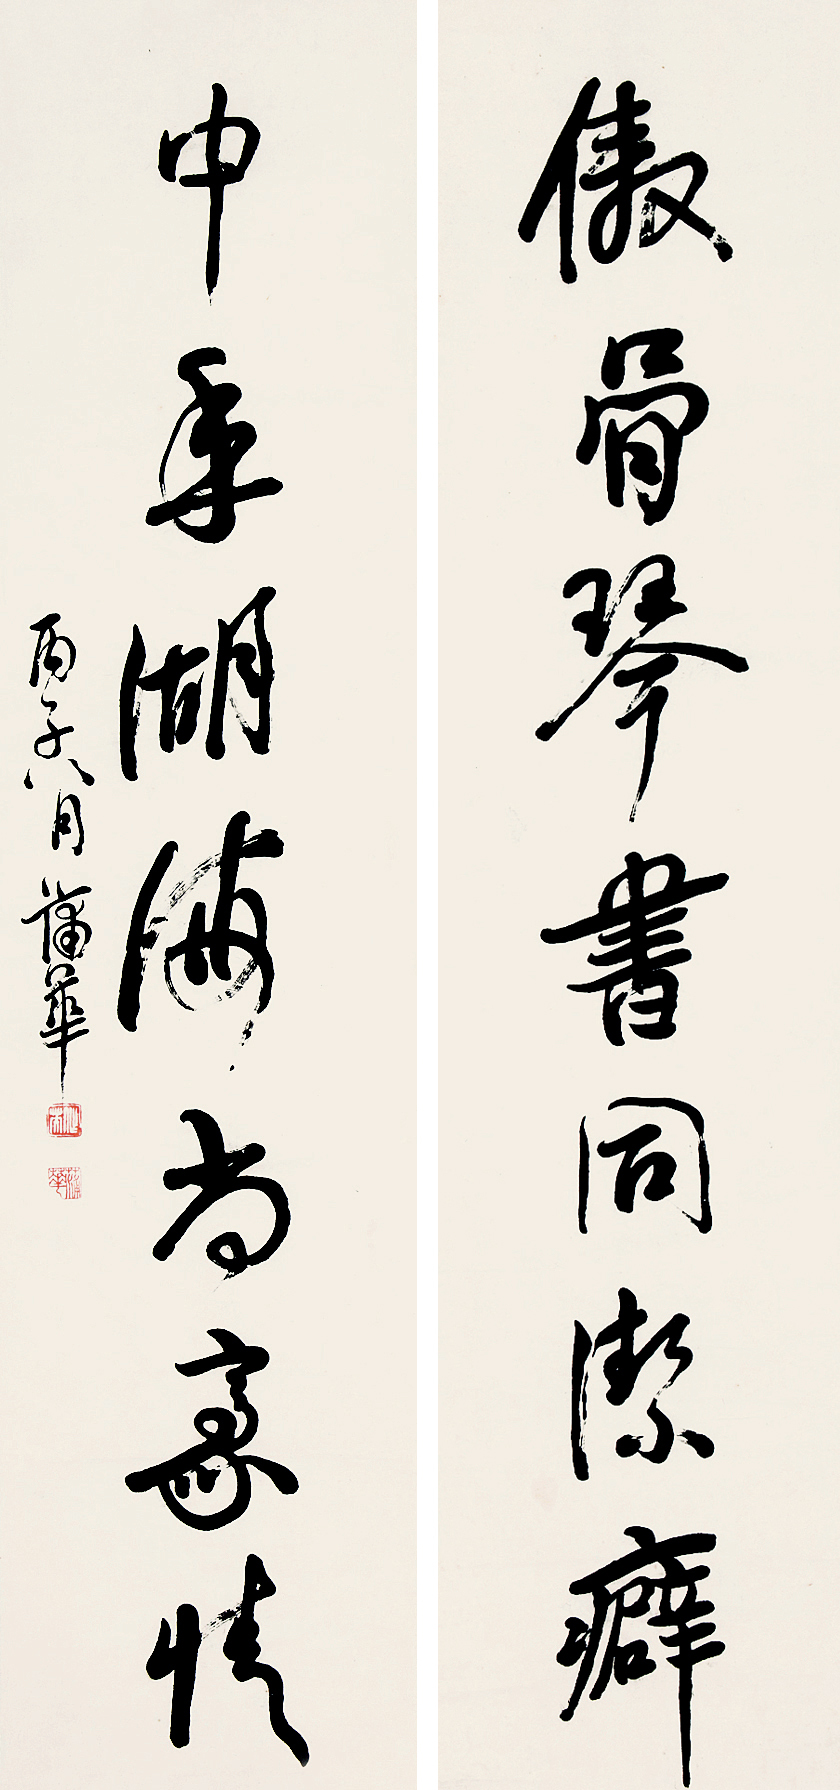 傲骨琴書同潔癖
中年湖海尚豪情
丙子八月蒲華
蒲華